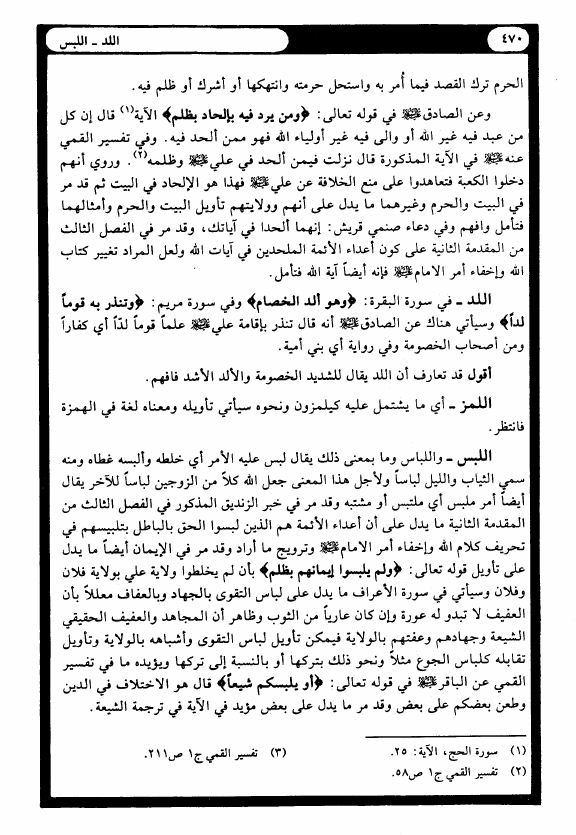 ٤٧٠
اللد ـ اللبس
الحرم ترك القصد فيما أُمر به واستحل حرمته وانتهكها أو أشرك أو ظلم فيه.
وعن الصادق عليه السلام في قوله تعالى: ﴿ومن يرد فيه بإلحاد بظلم﴾ الآية(١) قال إن كل
من عبد فيه غير الله أو والى فيه غير أولياء الله فهو ممن ألحد فيه. وفي تفسير القمي
عنه عليه السلام في الآية المذكورة قال نزلت فيمن ألحد في علي عليه السلام وظلمه(٢). وروي أنهم
دخلوا الكعبة فتعاهدوا على منع الخلافة عن علي عليه السلام فهذا هو الإلحاد في البيت ثم قد مر
في البيت والحرم وغيرهما ما يدل على أنهم وولايتهم تأويل البيت والحرم وأمثالهما
فتأمل وافهم وفي دعاء صنمي قريش: إنهما ألحدا في آياتك، وقد مر في الفصل الثالث
من المقدمة الثانية على كون أعداء الأئمة الملحدين في آيات الله ولعل المراد تغيير كتاب
الله وإخفاء أمر الامام عليه السلام فإنه أيضاً آية الله فتأمل.
اللد ـ في سورة البقرة: ﴿وهو ألد الخصام﴾ وفي سورة مريم: ﴿وتنذر به قوماً
لداً﴾ وسيأتي هناك عن الصادق عليه السلام أنه قال تنذر بإقامة علي عليه السلام علماً قوماً لدّاً أي كفاراً
ومن أصحاب الخصومة وفي رواية أي بني أمية.
أقول قد تعارف أن اللد يقال للشديد الخصومة والألد الأشد فافهم.
اللمز ـ أي ما يشتمل عليه كيلمزون ونحوه سيأتي تأويله ومعناه لغة في الهمزة
فانتظر.
اللبس ـ واللباس وما بمعنى ذلك يقال لبس عليه الأمر أي خلطه وألبسه غطاه ومنه
سمي الثياب والليل لباساً ولأجل هذا المعنى جعل الله كلاً من الزوجين لباساً للآخر يقال
أيضاً أمر ملبس أي ملتبس أو مشتبه وقد مر في خبر الزنديق المذكور في الفصل الثالث من
المقدمة الثانية ما يدل على أن أعداء الأئمة هم الذين لبسوا الحق بالباطل بتلبيسهم في
تحريف كلام الله وإخفاء أمر الامام عليه السلام وترويج ما أراد وقد مر في الإيمان أيضاً ما يدل
على تأويل قوله تعالى: ﴿ولم يلبسوا إيمانهم بظلم﴾ بأن لم يخلطوا ولاية علي بولاية فلان
وفلان وسيأتي في سورة الأعراف ما يدل على لباس التقوى بالجهاد وبالعفاف معللاً بأن
العفيف لا تبدو له عورة وإن كان عارياً من الثوب وظاهر أن المجاهد والعفيف الحقيقي
الشيعة وجهادهم وعفتهم بالولاية فيمكن تأويل لباس التقوى وأشباهه بالولاية وتأويل
تقابله كلباس الجوع مثلاً ونحو ذلك بتركها أو بالنسبة إلى تركها ويؤيده ما في تفسير
القمي عن الباقر عليه السلام في قوله تعالى: ﴿أو يلبسكم شيعاً﴾ قال هو الاختلاف في الدين
وطعن بعضكم على بعض وقد مر ما يدل على بعض مؤيد في الآية في ترجمة الشيعة.
(١) سورة الحج، الآية: ٢٥.
(٢) تفسير القمي ج١ ص٥٨.
(٣) تفسير القمي ج١ ص٢١١.